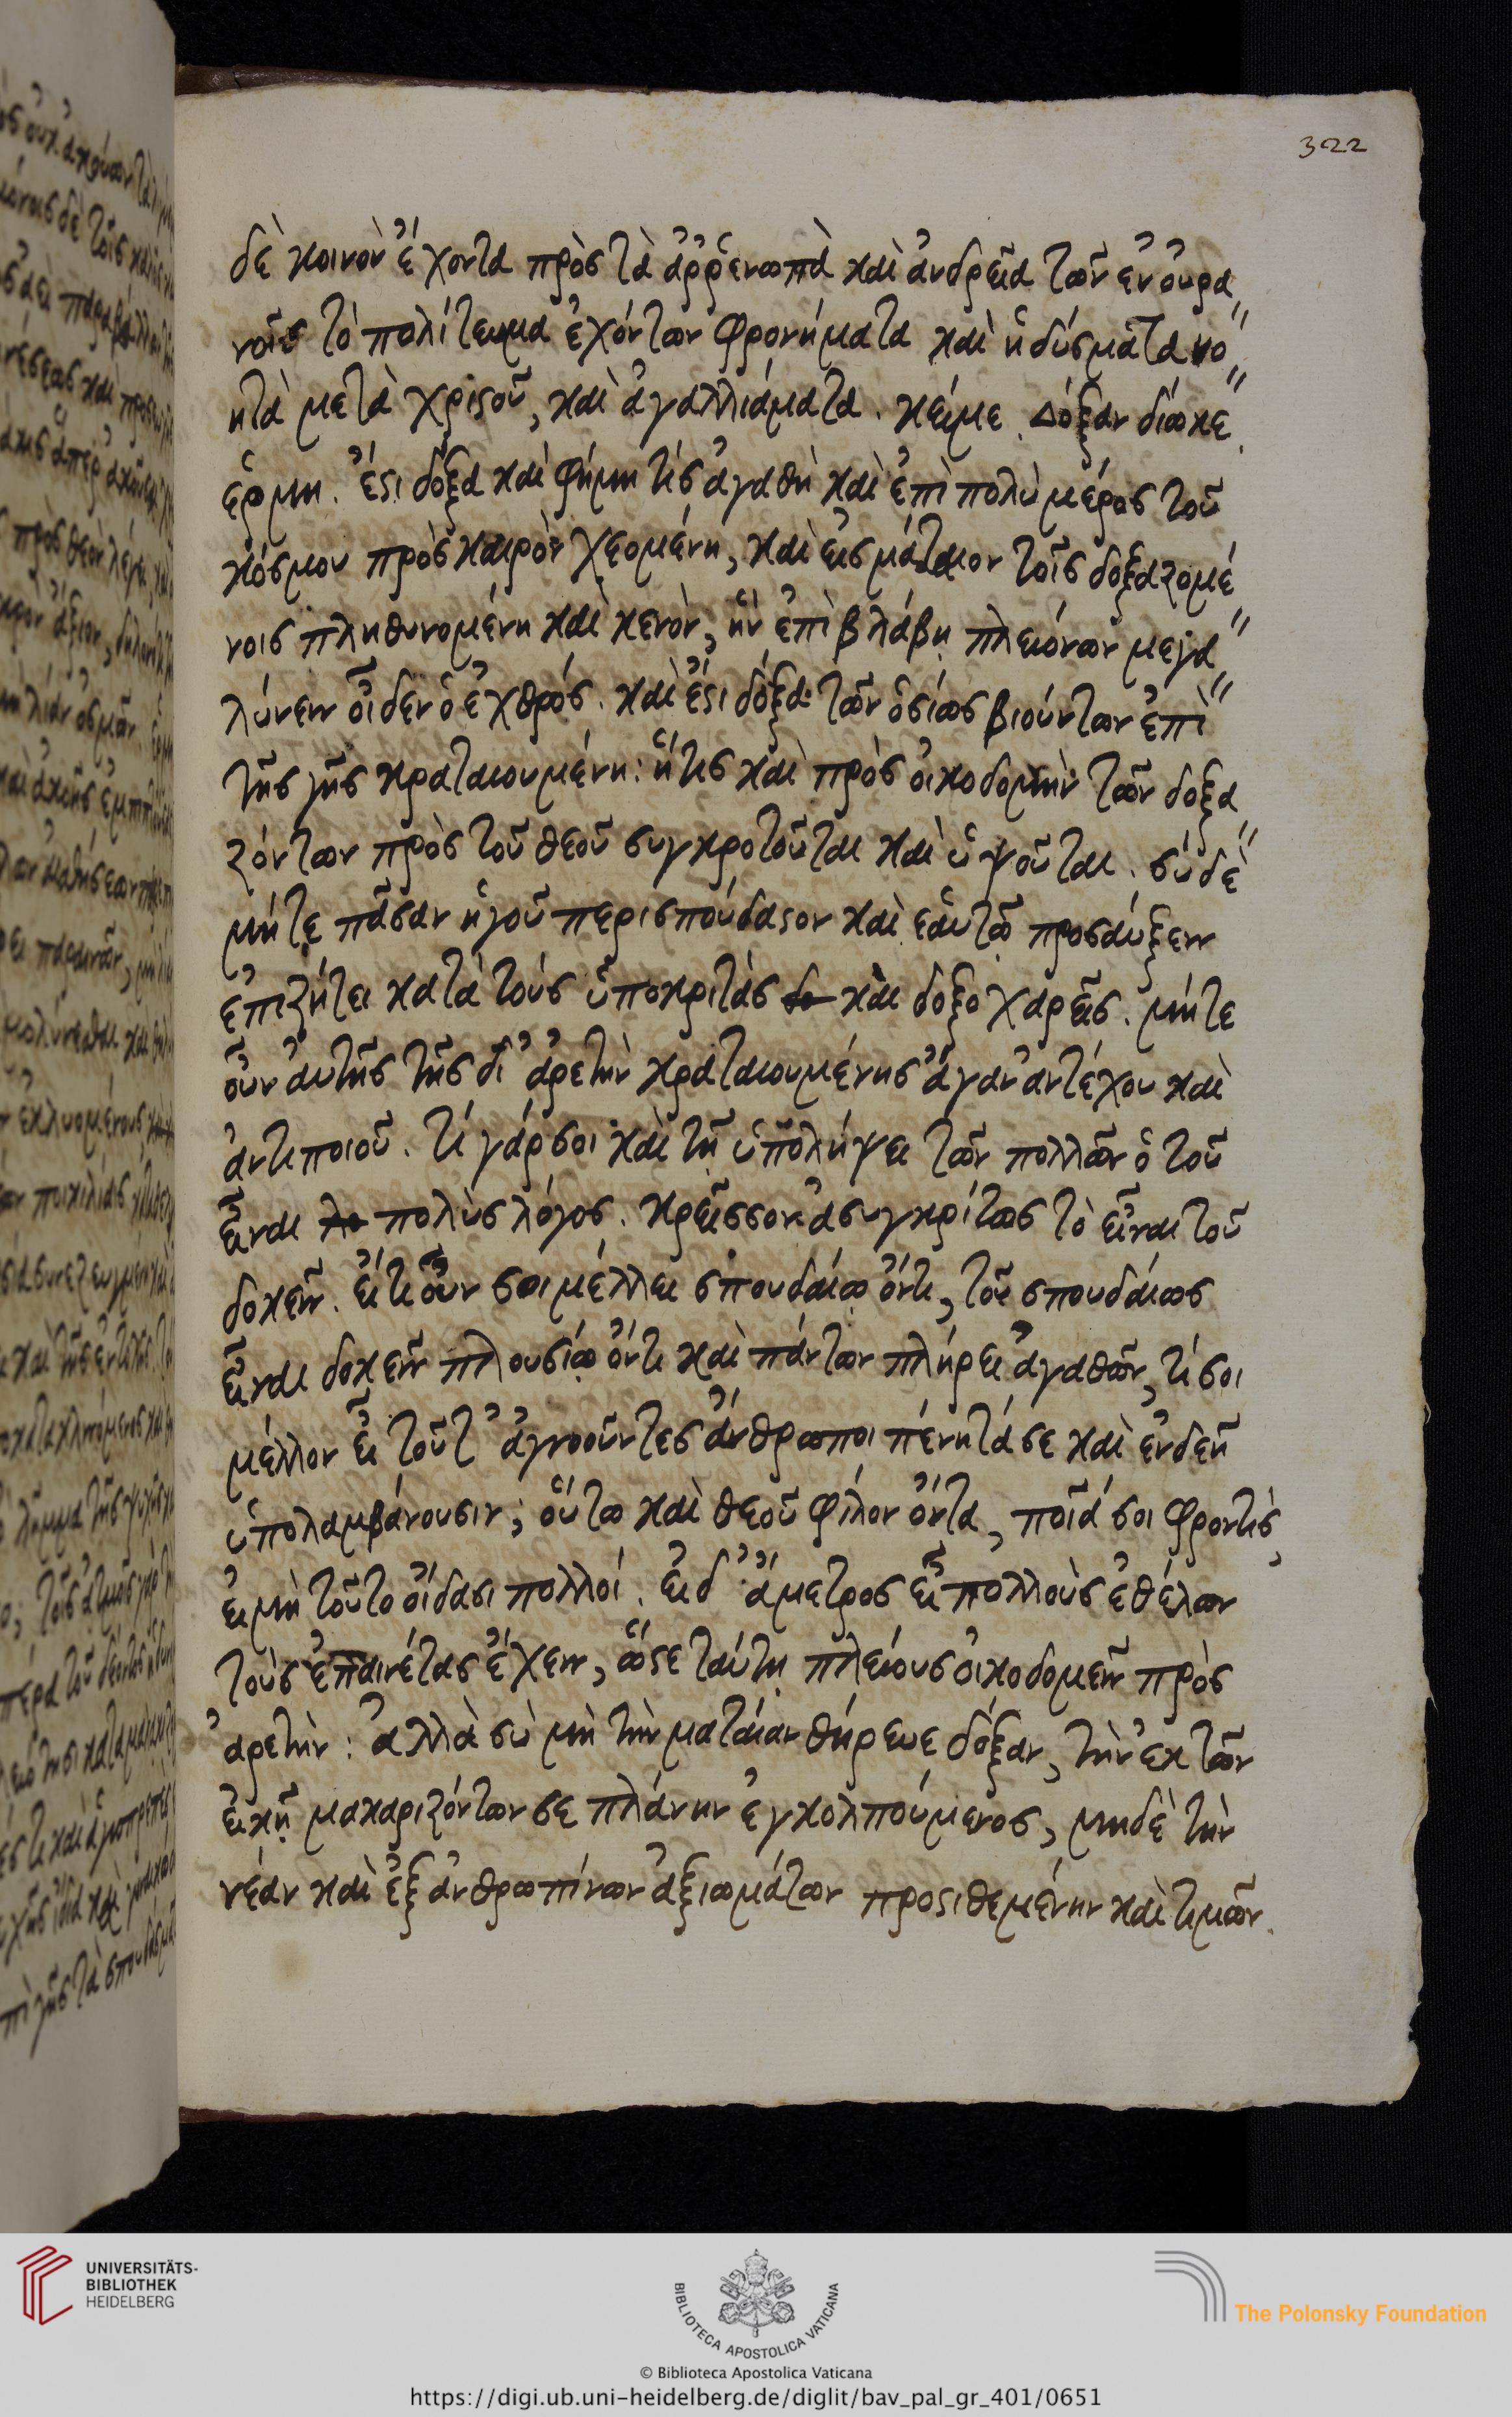 322
δὲ κοινὸν ἔχοντα πρὸς τὰ ἀῤῥενωπὰ καὶ ἀνδρεῖα τῶν ἐν οὐρα"
νοῖς τὸ πολίτευμα ἐχόντων φρονήματα καὶ ἡδύσματα νο"
ητὰ μετὰ χριστοῦ, καὶ ἀγαλλιάματα. κείμε. Δόξαν δίωκε"
ἑρμη. ἔστι δόξα καὶ φήμη τίς ἀγαθὴ καὶ ἐπὶ πολὺ μέρος τοῦ
κόσμου πρὸς καιρὸν χεομένη, καὶ εἰς μάταιον τοῖς δοξαζομέ
νοις πληθυνομένη καὶ κενὸν, ἣν ἐπὶ βλάβῃ πλειόνων μεγα"
λύνειν οἶδεν ὁ ἐχθρός. καὶ ἔστι δόξα τῶν ὁσίως βιούντων ἐπὶ"
τῆς γῆς κραταιουμένη: ἥτις καὶ πρὸς οἰκοδομὴν τῶν δοξα
ζόντων πρὸς τοῦ θεοῦ συγκροτοῦται καὶ ὑψοῦται. σὺ δὲ"
μήτε πᾶσαν ἡγοῦ περισπούδαστον καὶ ἑαυτῷ προσαύξειν
ἐπιζήτει κατὰ τοὺς ὑποκριτὰς καὶ δοξοχαρεῖς. μήτε
οὖν αὐτῆς τῆς δι' ἀρετὴν κραταιουμένης ἄγαν ἀντέχου καὶ
ἀντιποιοῦ. τί γάρ σοι καὶ τῇ ὑπολήψει τῶν πολλῶν ὁ τοῦ
εἶναι πολὺς λόγος. κρεῖσσον ἀσυγκρίτως τὸ εἶναι τοῦ
δοκεῖν. εἴ τι οὖν σοι μέλλει σπουδαίῳ ὄντι, τοῦ σπουδαίως
εἶναι δοκεῖν πλουσίῳ ὄντι καὶ πάντων πλήρει ἀγαθῶν, τί σοι
μέλλον εἰ τοῦτ' ἀγνοοῦντες ἄνθρωποι πένητά σε καὶ ἐνδεῆ
ὑπολαμβάνουσιν; οὕτω καὶ θεοῦ φίλον ὄντα, ποῖά σοι φροντὶς,
εἰ μὴ τοῦτο οἴδασι πολλοί. εἰ δ' ἄμετρος εἶ πολλοὺς ἐθέλων
τοὺς ἐπαινέτας ἔχειν, ὥστε ταύτῃ πλείους οἰκοδομεῖν πρὸς
ἀρετὴν: ἀλλὰ σὺ μὴ τὴν ματαίαν θήρευε δόξαν, τὴν ἐκ τῶν
εἰκῇ μακαριζόντων σε πλάνην ἐγκολπούμενος, μηδὲ τὴν
νέαν καὶ ἐξ ἀνθρωπίνων ἀξιωμάτων προστιθεμένην καὶ τιμῶν.
UNIVERSITÄTS-
BIBLIOTHEK
HEIDELBERG
BIBLIOTECA APOSTOLICA VATICANA
The Polonsky Foundation
© Biblioteca Apostolica Vaticana
https://digi.ub.uni-heidelberg.de/diglit/bav_pal_gr_401/0651